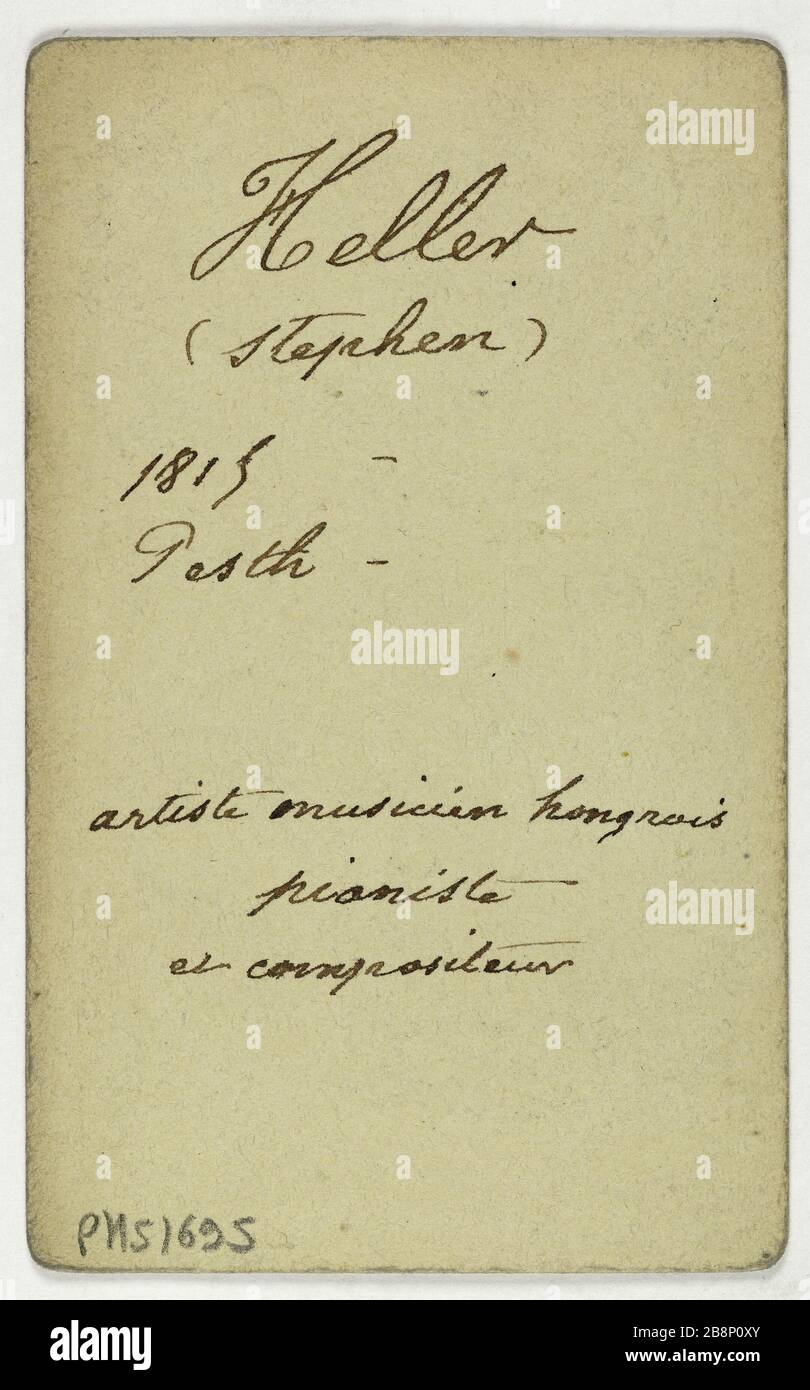 Heller
(stephen)
1815 -
Pesth -
artiste musicien hongrois
pianiste
et compositeur
PH51695
alamy
alamy
alamy
alamy
Image ID: 2B8P0XY
www.alamy.com